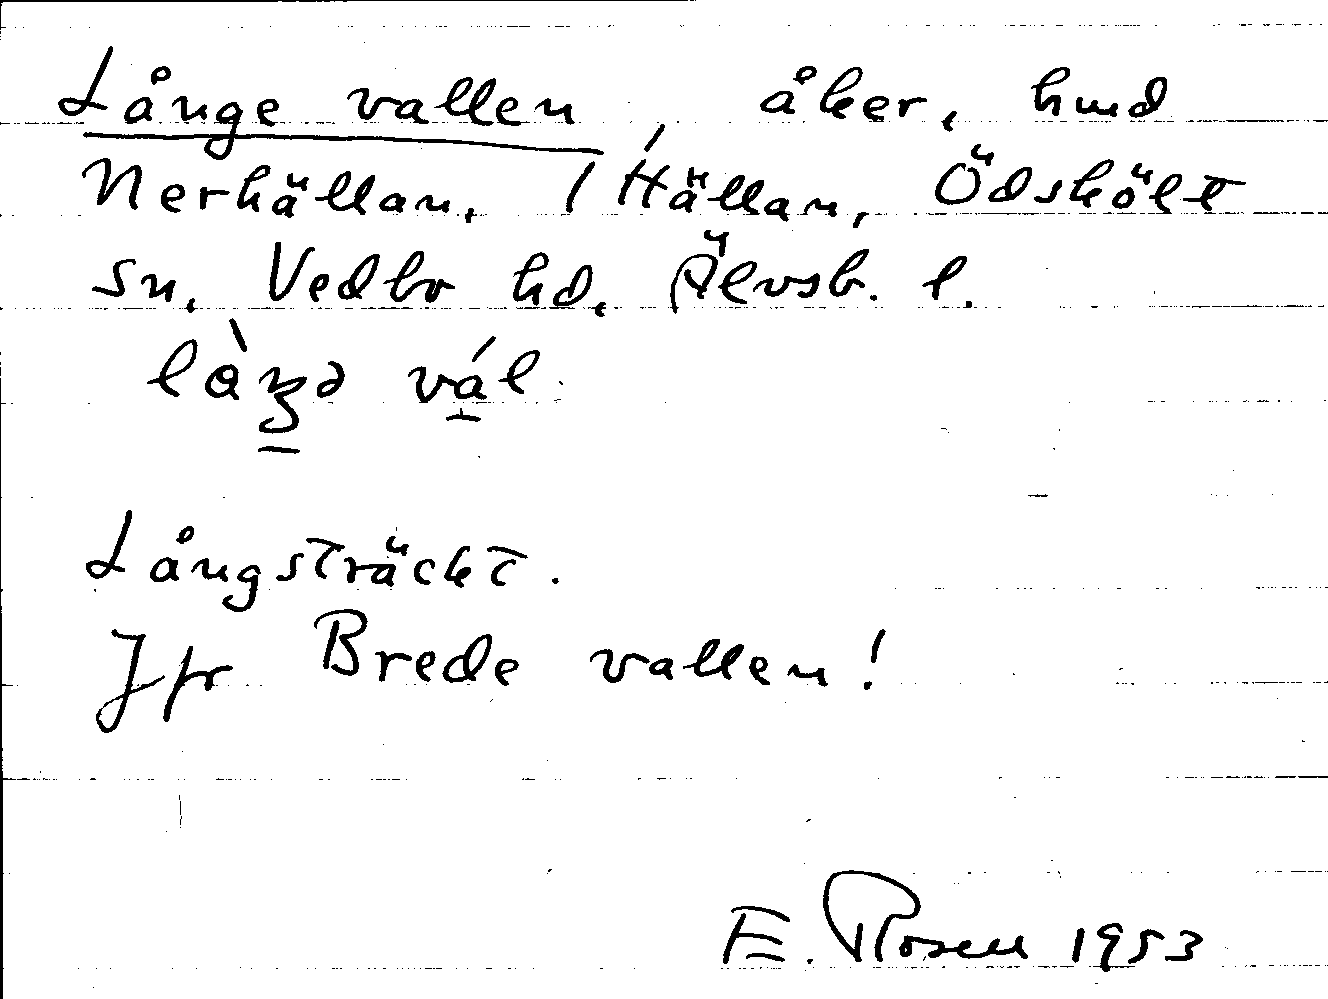 Långe vallen, åker, hmd
Nerhällan, 1 Hällan, Ödskölt
sn, Vedbo hd, Älvsb. l.
vál
Långsträckt.
Jfr Brede vallen!
E. Rosell 1953